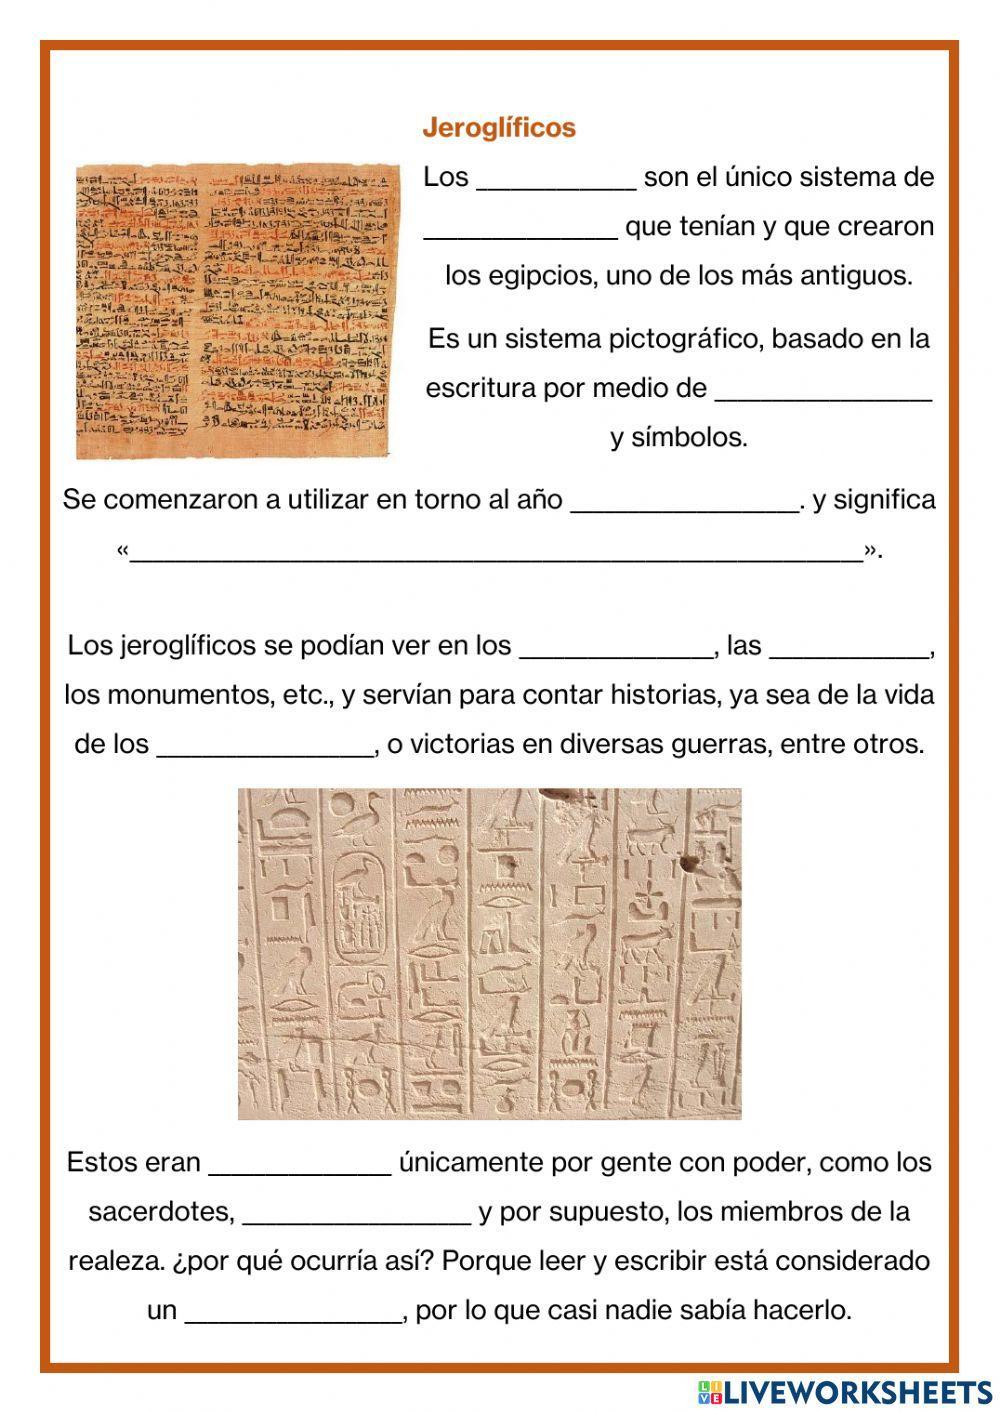 Jeroglíficos
Los ____________ son el único sistema de
______________ que tenían y que crearon
los egipcios, uno de los más antiguos.
Es un sistema pictográfico, basado en la
escritura por medio de ________________
y símbolos.
Se comenzaron a utilizar en torno al año _________________. y significa
«______________________________________________________».
Los jeroglíficos se podían ver en los ______________, las ____________,
los monumentos, etc., y servían para contar historias, ya sea de la vida
de los ________________, o victorias en diversas guerras, entre otros.
Estos eran _____________ únicamente por gente con poder, como los
sacerdotes, _________________ y por supuesto, los miembros de la
realeza. ¿por qué ocurría así? Porque leer y escribir está considerado
un ________________, por lo que casi nadie sabía hacerlo.
LIVEWORKSHEETS